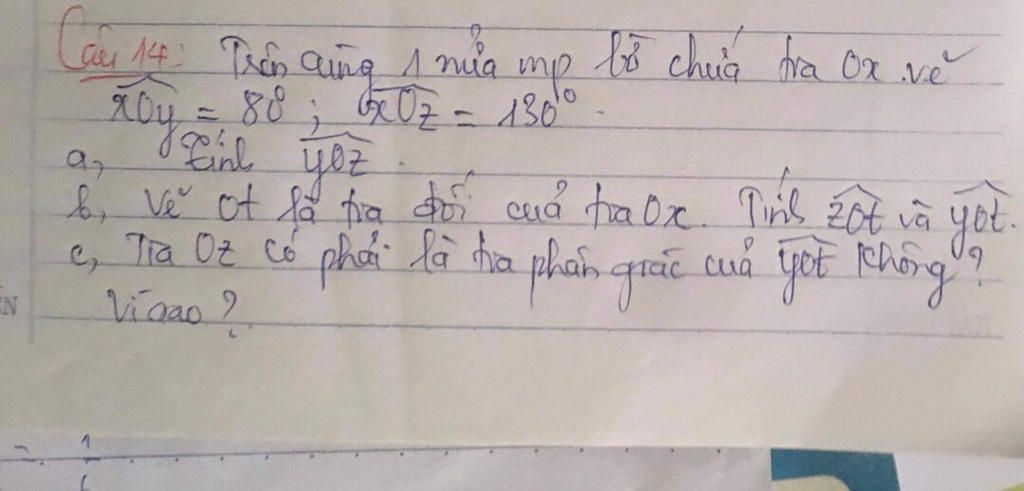 Câu 14: Trên cùng 1 nửa mp bờ chứa tia Ox vẽ
xOy = 80°; xOz = 130°.
a, Tính yOz.
b, Vẽ Ot là tia đối của tia Ox. Tính zOt và yOt.
c, Tia Oz có phải là tia phân giác của yOt không?
Vì sao?
= 1